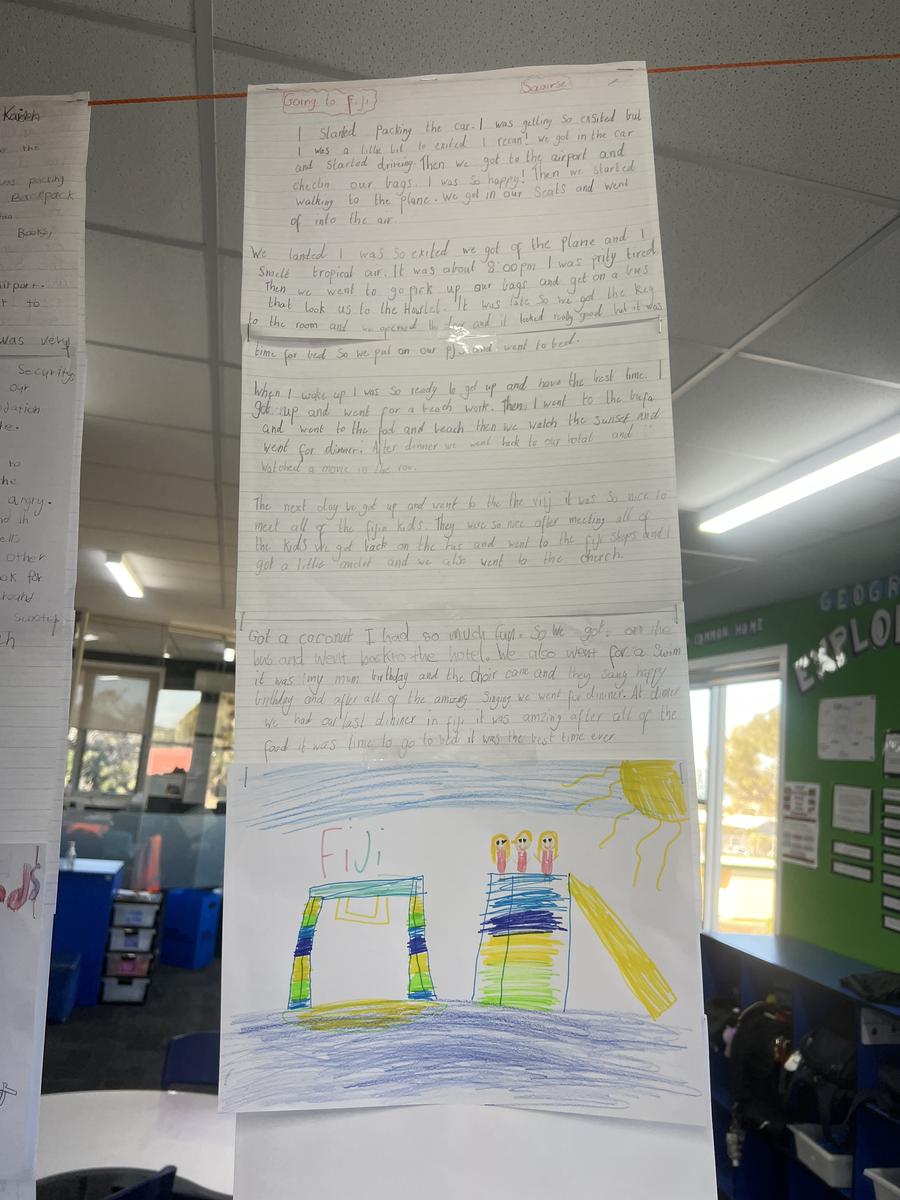 Going to Fiji
Saoirse
I Started packing the car. I was getting so ensited but
I was a little bit to exited I recan! we got in the car
and started driving. Then we got to the airport and
checkin our bags. I was so happy! Then we started
walking to the plane. We got in our seats and went
of into the air.
We landed I was so exited we got of the plane and I
Smelt tropical air. It was about 8:00pm I was prity tired
Then we went to go pick up our bags and get on a bus
that took us to the Howtel. It was late so we got the key
to the room and we opened the door and it looked really good but it was
time for bed So we put on our PJs and went to bed.
When I wake up I was so ready to get up and have the best time. I
got up and went for a beach work. Then I went to the bufa
and went to the pool and beach then we watch the sunset and
went for dinner. After dinner we went back to our hotal and
watched a movie in the
The next day we got up and went to the the vilij it was so nice to
meet all of the fijin kids. They were so nice after meeting all of
the kids we got back on the bus and went to the fiji shops and I
got a little and we also went to the church.
Got a coconut I had so much fun. So we got on the
bus and went back to the hotel. We also went for a swim
it was my mum birthday and the choir came and they sang happy
birthday and after all of the amazing singing we went for dinner. At dinner
we had our last dinner in fiji it was amzing after all of the
food it was time to go to bed it was the best time ever
FiJi
Kaideh
the
packing
Backpack
Books,
airport.
to
was very
Security
our
to
the
angry.
other
for
around
scooter
GEOGR
COMMON HOME
EXPLO